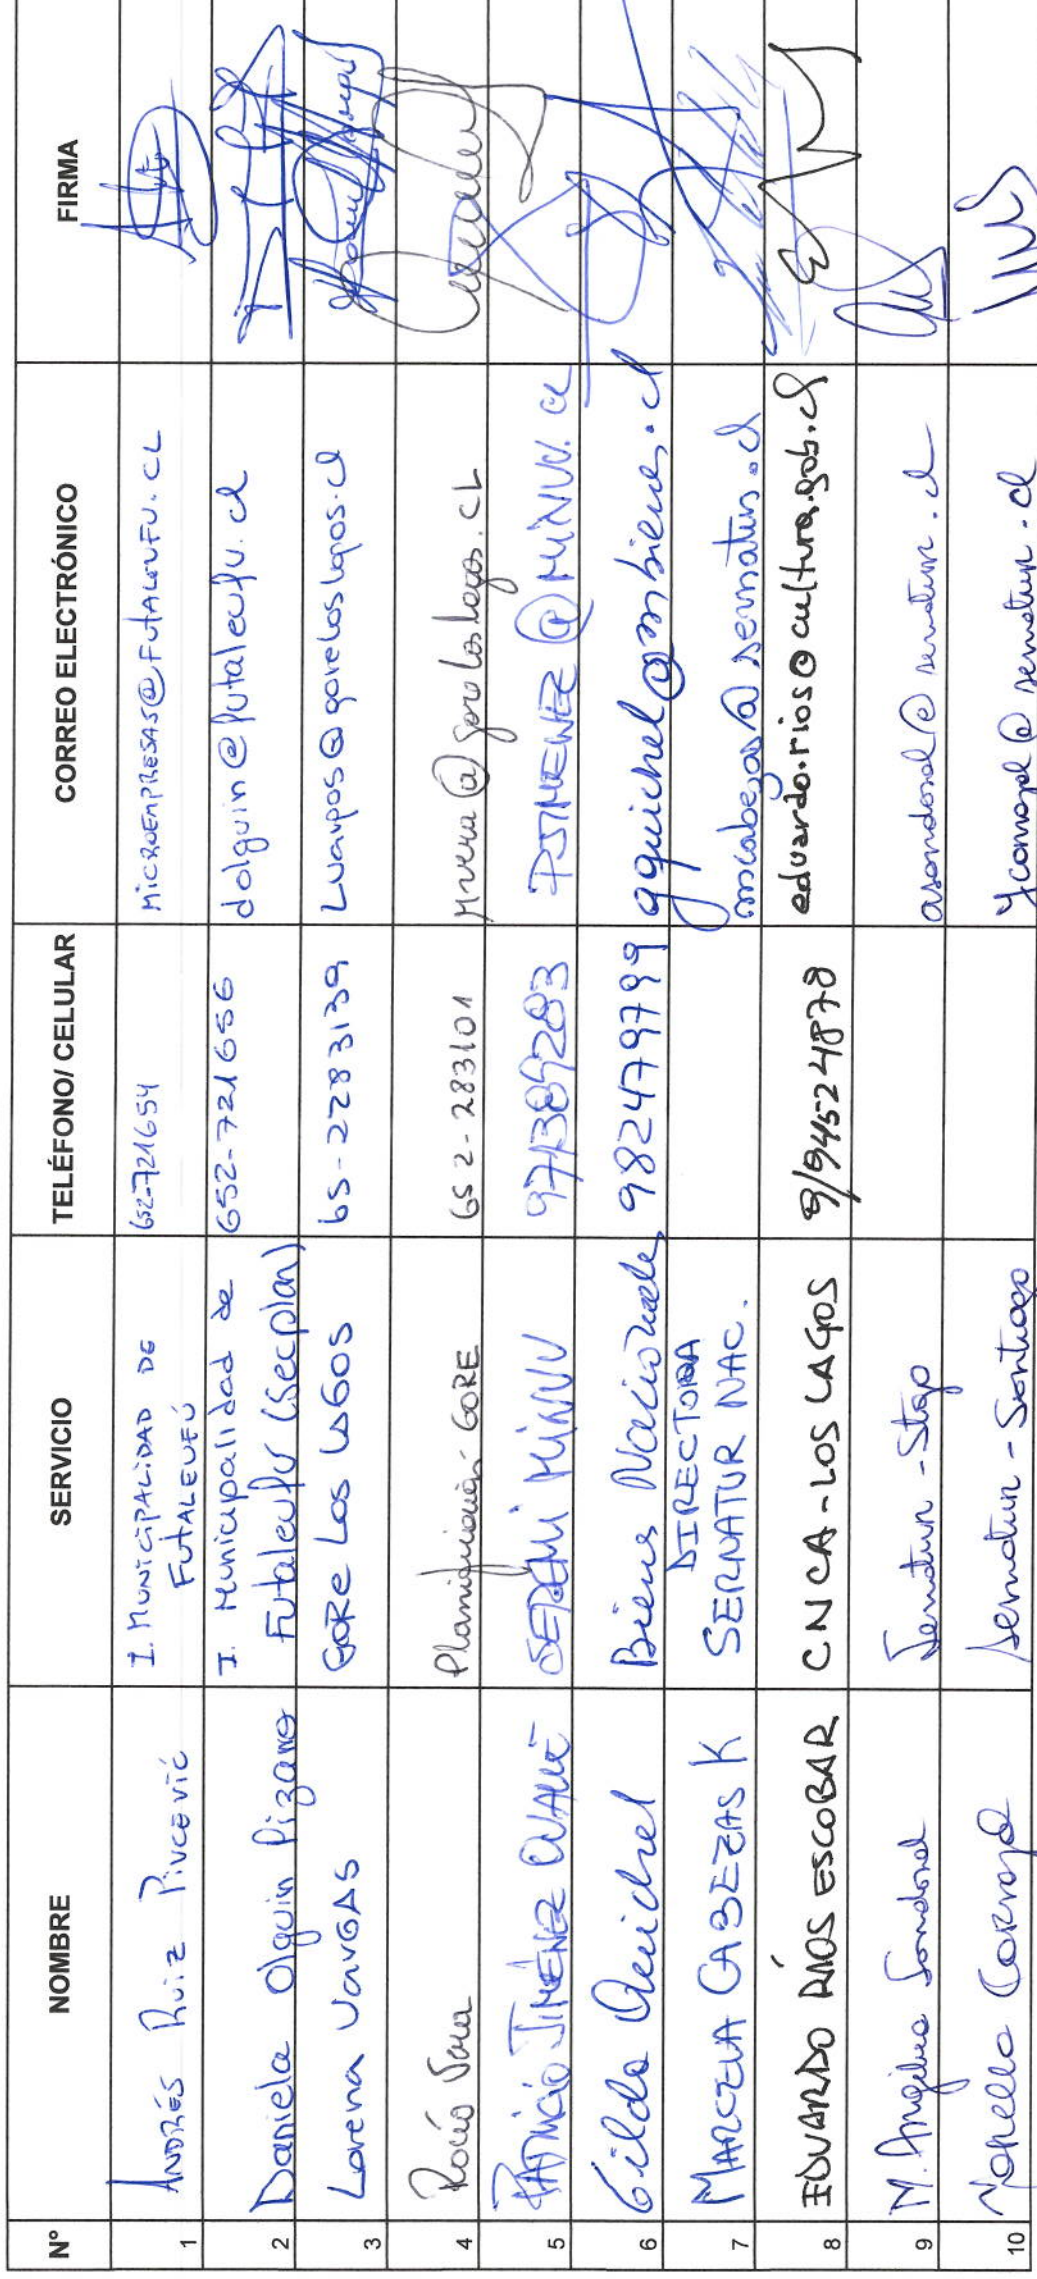 Nº NOMBRE SERVICIO TELÉFONO/ CELULAR CORREO ELECTRÓNICO FIRMA
1 ANDRÉS Ruiz Pivcević I. MUNICIPALIDAD DE 652-721654 MICROEMPRESAS@FUTALEUFU.CL
FUTALEUFÚ
2 Daniela Olguin Pizarro I. Municipalidad de 652-721656 dolguin@futaleufu.cl
Futaleufu (Secplan)
3 Lorena VarGAS GORe Los LaGOS 65-2283139 Lvargas@goreloslagos.cl
4 Rocío Planificación-GORE 65 2-283101 @goreloslagos.CL
5 PATRICIO JIMÉNEZ SEREMI MINVU 97/389283 PJIMENEZ@MINVU.CL
6 Gilda Quichel Bienes Nacionales 982479799 gquichel@mbienes.cl
7 MARCELA CABEZAS K DIRECTORA mcabezas@sernatur.cl
SERNATUR NAC.
8 EDUARDO RÍOS ESCOBAR CNCA-LOS LAGOS 9/94524878 eduardo.rios@cultura.gob.cl
9 M. Angélica Sandoval Sernatur-Stgo asandoval@sernatur.cl
10 Carvajal Sernatur-Santiago ycarvajal@sernatur.cl